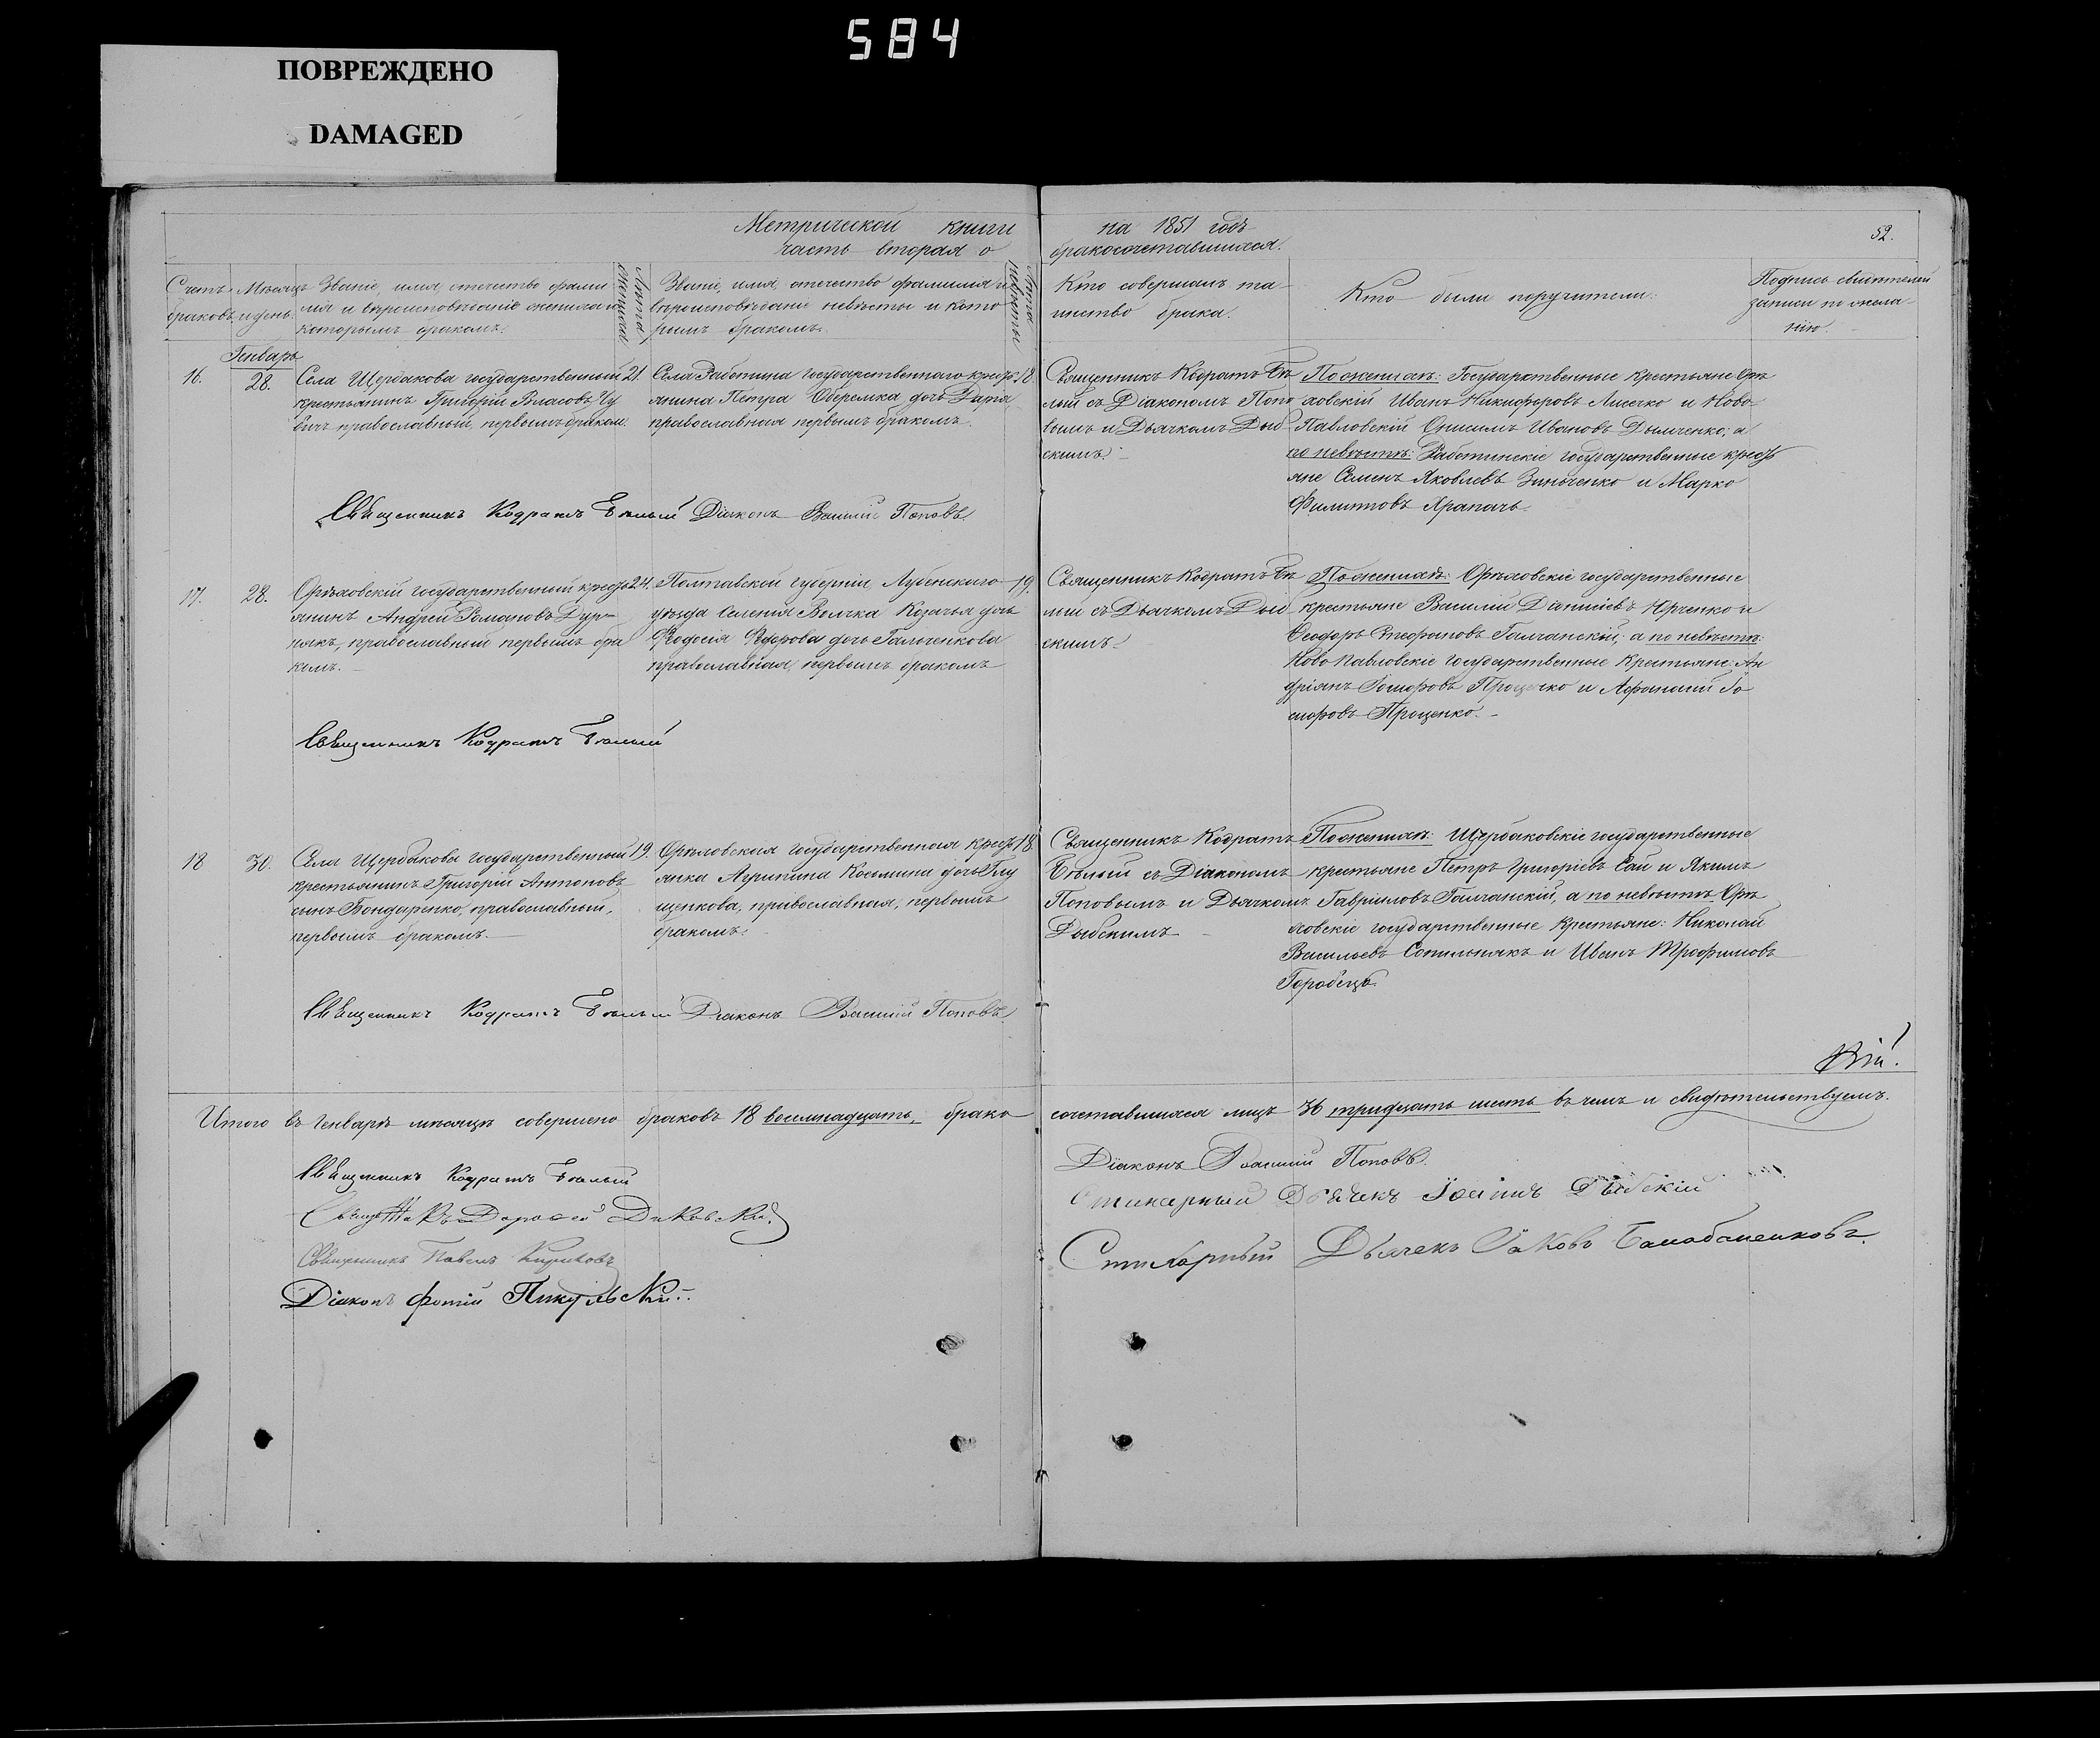 584
ПОВРЕЖДЕНО
DAMAGED
Метрической книги на 1851 годъ
часть вторая о бракосочетавшихся.
52.
Счетъ браковъ.
Мѣсяцъ и день.
Званіе, имя, отечество фами
лія и вѣроисповѣданіе жениха и
которымъ бракомъ.
Лѣта жениха
Званіе, имя, отечество фамилія и
вѣроисповѣданіе невѣсты и кото
рымъ бракомъ.
Лѣта невѣсты
Кто совершалъ та-
инство брака.
Кто были поручители.
Подпись свидѣтелей
записи по жела-
нію.
Генварь
16.
28.
Села Щербакова государственный
крестьянинъ Григорій Власовъ
православный, первымъ браком.
21.
Села Работина государственнаго крестъ
янина Петра Оберемка дочь Дарія
православная первымъ бракомъ.
18
Священникъ Кодратъ Бѣ
лый съ Діакономъ Попо
вымъ и Дьячкомъ Дыб
скимъ.
По женихѣ: Государственные крестьяне Орѣ
ховскій Иванъ Никифоровъ Лисечко и Ново-
Павловскій Онисимъ Ивановъ Дымченко; а
по невѣстѣ: Работинскіе государственные крестъ
яне Семенъ Яковлевъ Зинченко и Марко
Филиповъ Храпачъ.
Священникъ Кодратъ Бѣлый Діаконъ Василій Поповъ
17.
28.
Орѣховскій государственный крестъ
янинъ Андрей Романовъ Дур-
някъ, православный первымъ бра
комъ.
24.
Полтавской губерніи, Лубенскаго
уѣзда селенія Козачья дочь
Ѳеодосія Федорова дочь Гальченкова
православная, первымъ бракомъ
19.
Священникъ Кодратъ Бѣ
лый съ Дьячкомъ Дыб
скимъ.
По женихѣ: Орѣховскіе государственные
крестьяне Василій Діонисіевъ Юрченко и
Ѳеодоръ Стефановъ Галчанскій; а по невѣстѣ:
Ново Павловскіе государственные крестьяне: Ан
дріянъ Проценко и Афанасій
Проценко.
Священникъ Кодратъ Бѣлый
18
30.
Села Щербакова государственный
крестьянинъ Григорій Антоновъ
сынъ Бондаренко, православный,
первымъ бракомъ.
19.
Орѣховская государственная крестъ
янка Агрипина Косьмина дочь Глу
щенкова, православная, первымъ
бракомъ.
18.
Священникъ Кодратъ
Бѣлый съ Діакономъ
Поповымъ и Дьячкомъ
Дыбскимъ
По женихѣ: Щербаковскіе государственные
крестьяне Петръ Григоріевъ Сай и Якимъ
Гавріиловъ Галчанскій, а по невѣстѣ Орѣ
ховскіе государственные крестьяне: Николай
Васильевъ Сопильнякъ и Иванъ Трофимовъ
Городецъ.
Священникъ Кодратъ Бѣлый Діаконъ Василій Поповъ
Итого въ Генварѣ мѣсяцѣ совершено браковъ 18 восемнадцать, брако сочетавшихся лицъ 36 тридцать шесть въ чемъ и свидѣтельствуемъ.
Священникъ Кодратъ Бѣлый
Діаконъ Василій Поповъ.
Священникъ Дорофей
Стихарный Дьячекъ Іосифъ Дыбскій
Священникъ Павелъ
Стихарный Дьячекъ Іаковъ Балабаненковъ.
Діаконъ Фотій Пикульскій.